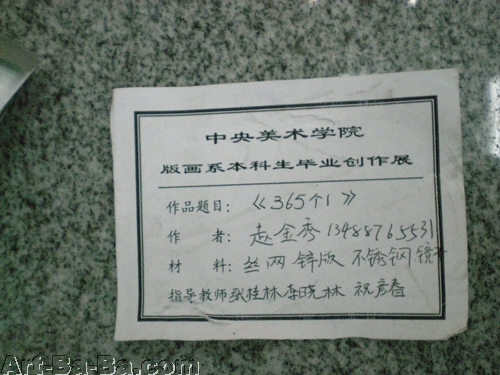 中央美术学院
版画系本科生毕业创作展
作品题目：《365个1》
作　者：赵金秀 13488765531
材　料：丝网 锌版 不锈钢镜子
指导教师 张桂林 李晓林 祝彦春
Art-Ba-Ba.com
Art-Ba-Ba.com